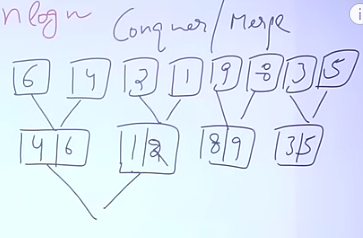 nlogn Conquer/Merge
6 4 2 1 9 8 3 5
4|6 1|2 8|9 3|5